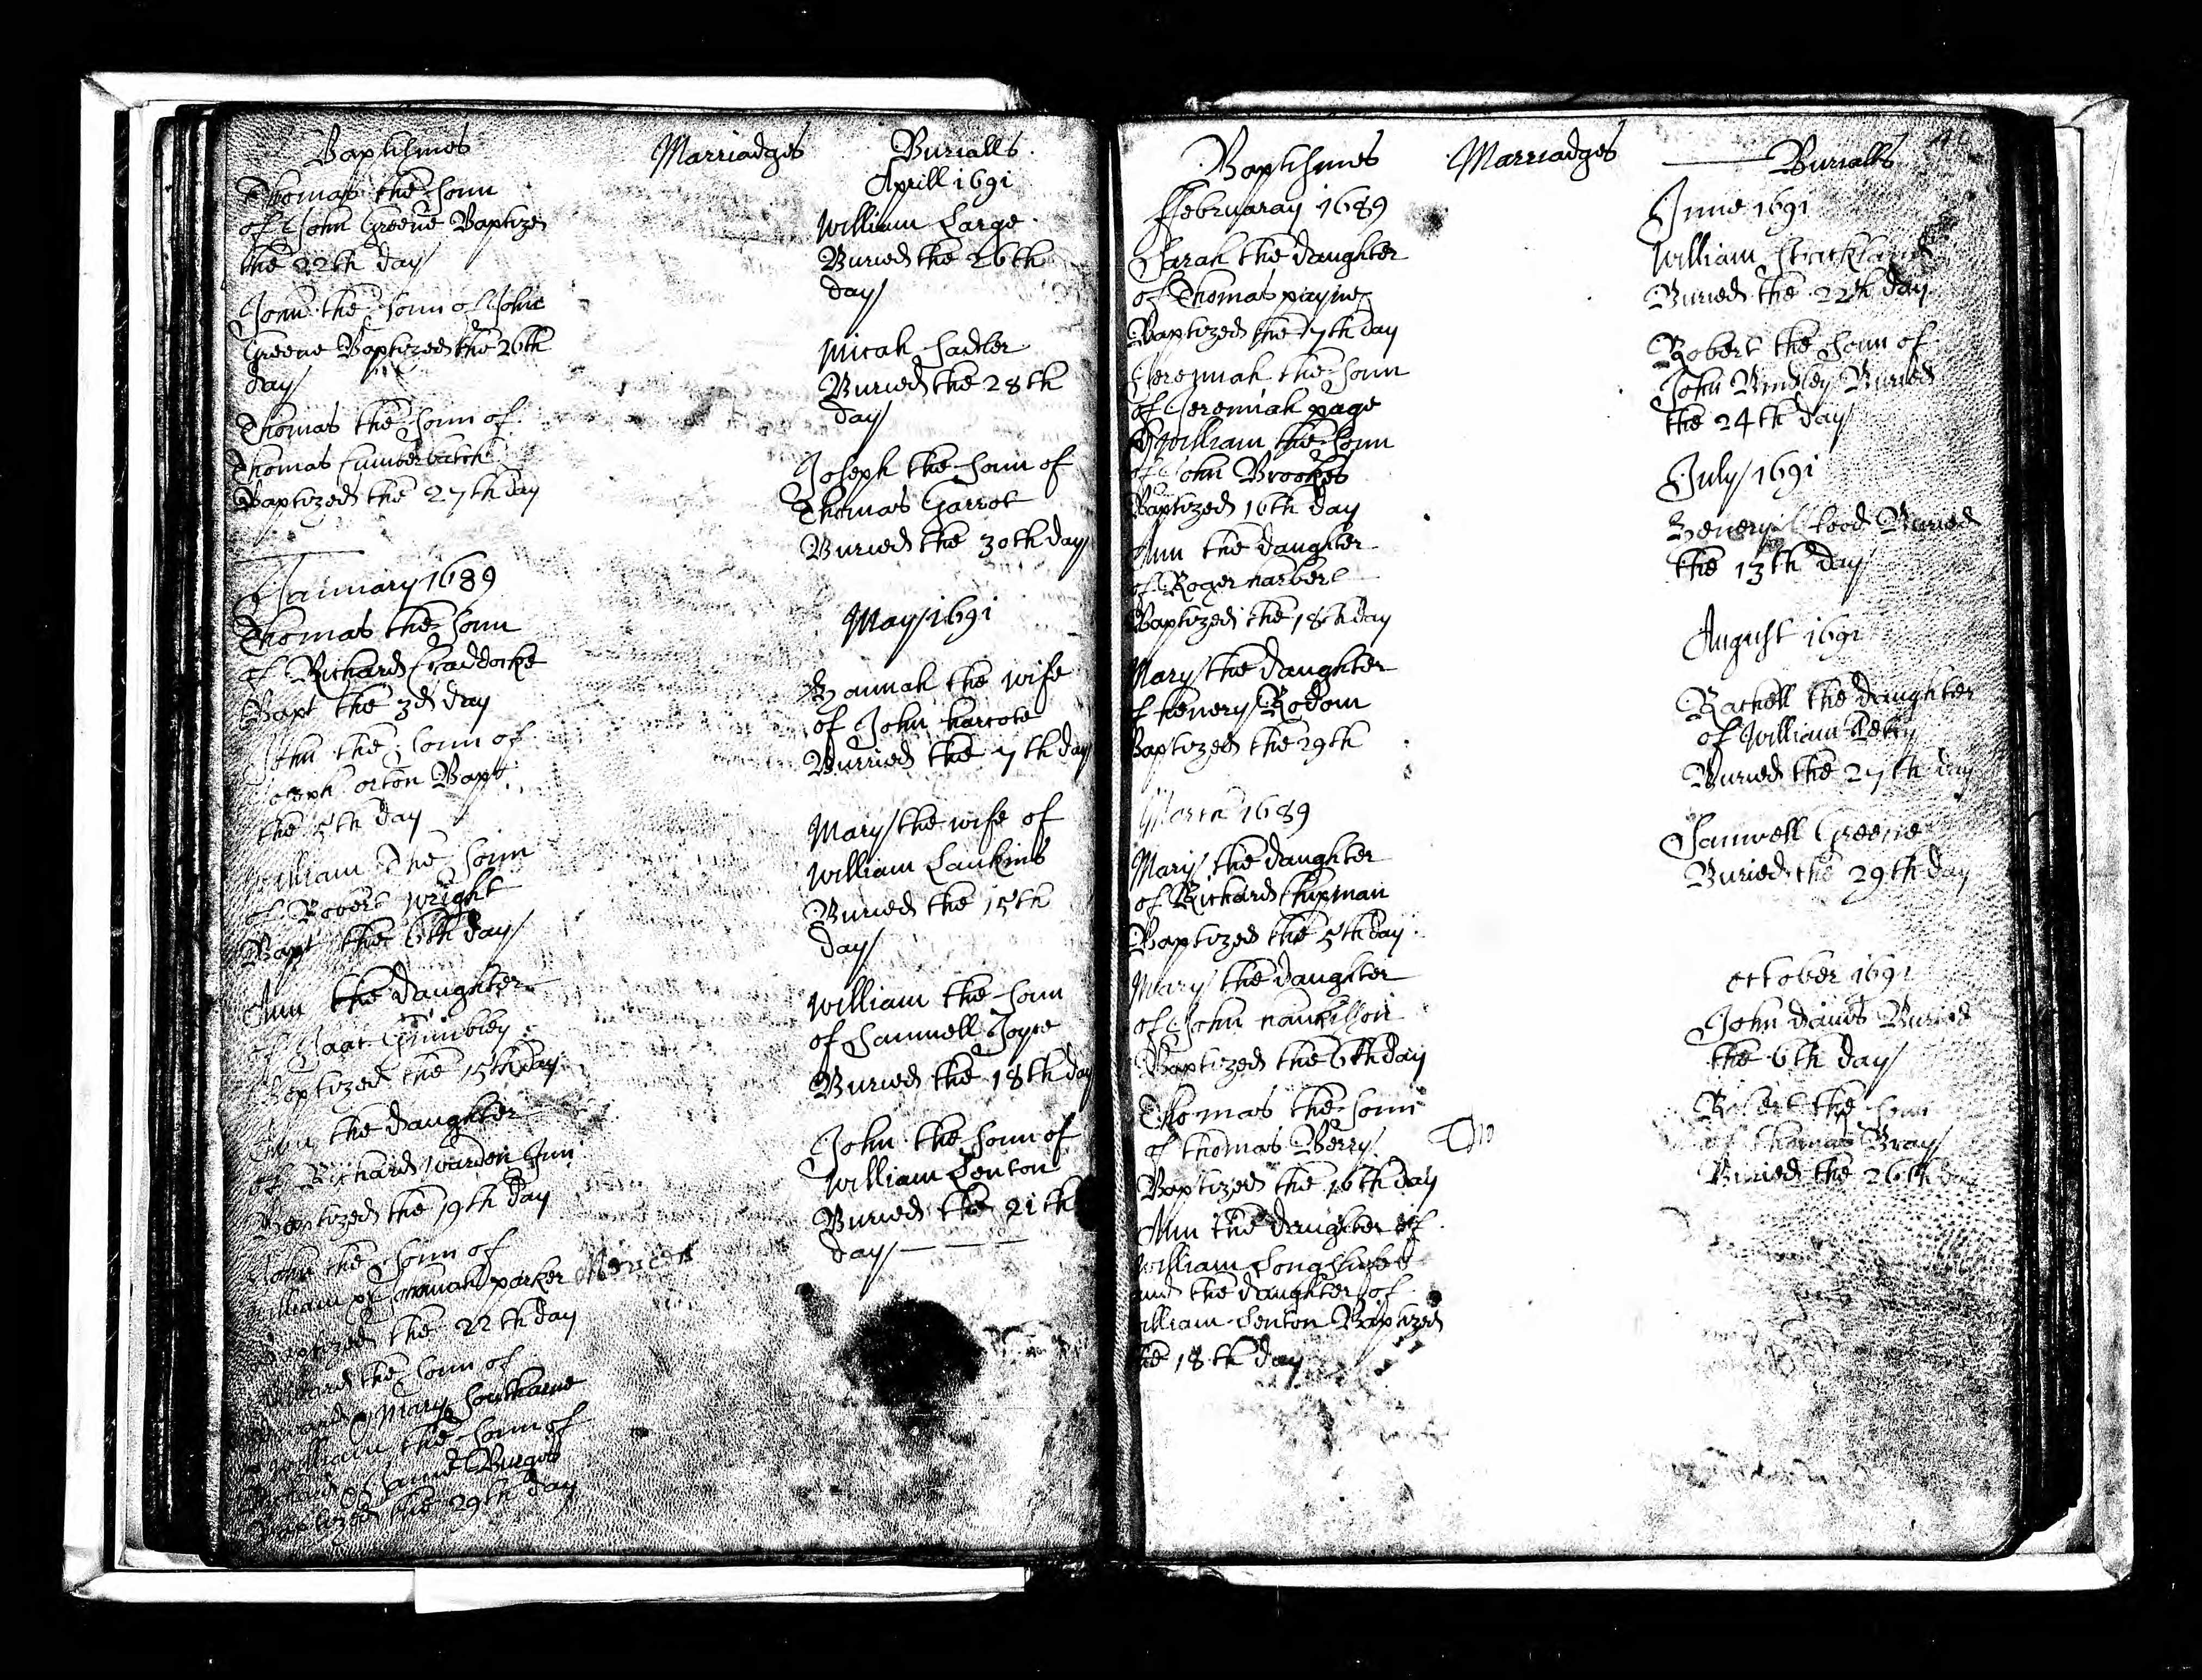 Baptismes
Thomas the Sonn
of John Greene Baptized
the 22th day
John the Sonn of John
Greene Baptized the 26th
day
Thomas the Sonn of
Thomas Cumberbatch
Baptized the 27th day
January 1689
Thomas the Sonn
of Richard Craddocke
Bapt the 3d day
John the Sonn of
Joseph orton Bapt
the 5th day
William the Sonn
of Robert wright
Bapt the 6th day
Ann the daughter
of Isaac Grimbley
Baptized the 15th day
Ann the daughter
of Richard warden Jun
Baptized the 19th day
John the Sonn of
William parker
Baptized the 22th day
the Sonn of
Mary
William the Sonn of
Burges
Baptized the 29th day
Marriadges
Burialls
Aprill 1691
William Large
Buried the 26th
day
Micah Sadler
Buried the 28th
day
Joseph the Sonn of
Thomas Garrot
Buried the 30th day
May 1691
Hannah the wife
of John harcote
Burried the 7th day
Mary the wife of
William Lankins
Buried the 15th
day
William the Sonn
of Samuell Joyce
Buried the 18th day
John the Sonn of
William Senton
Buried the 21th
day
Baptismes
Februaray 1689
Sarah the daughter
of Thomas payne
Baptized the 7th day
Jeremiah the Sonn
of Jeremiah page
& William the Sonn
of John Brookes
Baptized 16th day
Ann the daughter
of Roger harbert
Baptized the 18th day
Mary the daughter
of henery Rodom
Baptized the 29th
March 1689
Mary the daughter
of Richard Chipman
Baptized the 5th day
Mary the daughter
of John
Baptized the 6th day
Thomas the Sonn
of thomas Berry
Baptized the 16th day
Ann the daughter of
William
and the daughter of
William Senton Baptized
the 18th day
Marriadges
Burialls
June 1691
William Strickland
Buried the 22th day
Robert the Sonn of
John Bindley Buried
the 24th day
July 1691
Henery Buried
the 13th day
August 1691
Rachell the daughter
of William
Buried the 27th day
Samuell Greene
Buried the 29th day
october 1691
John davis Buried
the 6th day
Robert the Sonn
of thomas Bray
Buried the 26th day